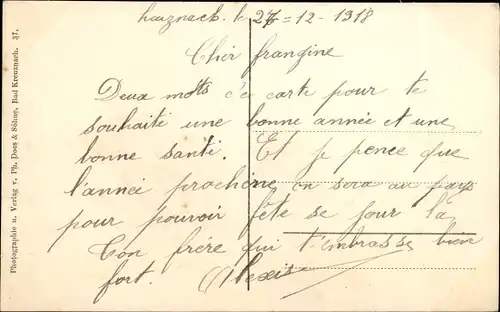 Kreuznach. le 27=12-1918
Chér frangine
Deux motts c'e carte pour te
souhaité une bonne année et une
bonne santé. Et je pence que
l'année procheine on sera au pays
pour pouvoir fête se jour la
Ton frère qui t'embrasse bien
fort. Alexis
Photographie u. Verlag v. Ph. Doos & Söhne, Bad Kreuznach. 37.